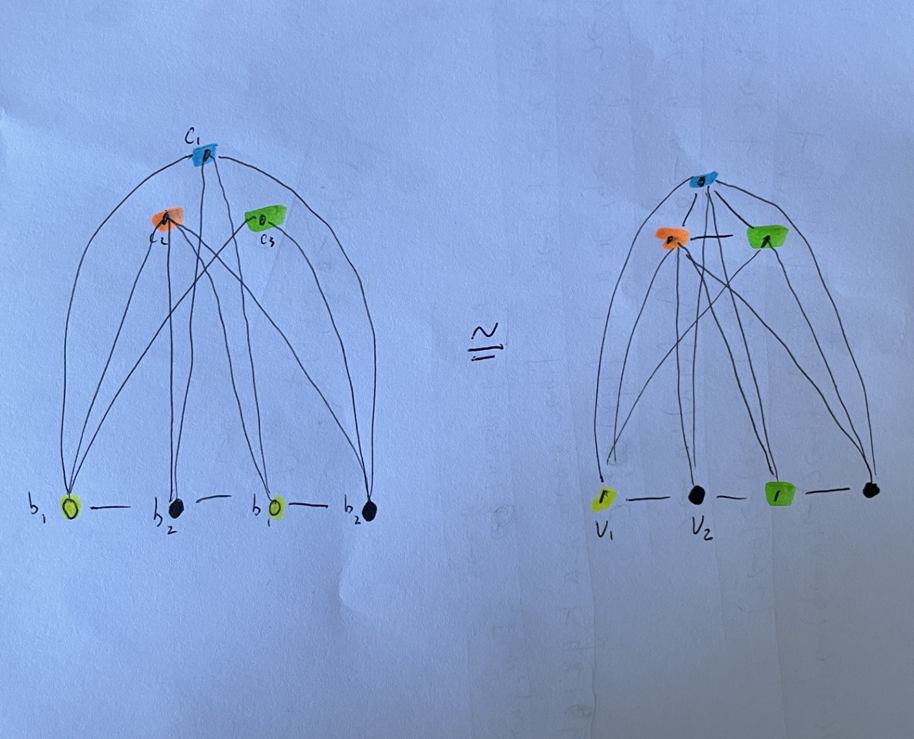 C₁
C₂ C₃
≅
b₁ b₂ b₁ b₂
V₁ V₂